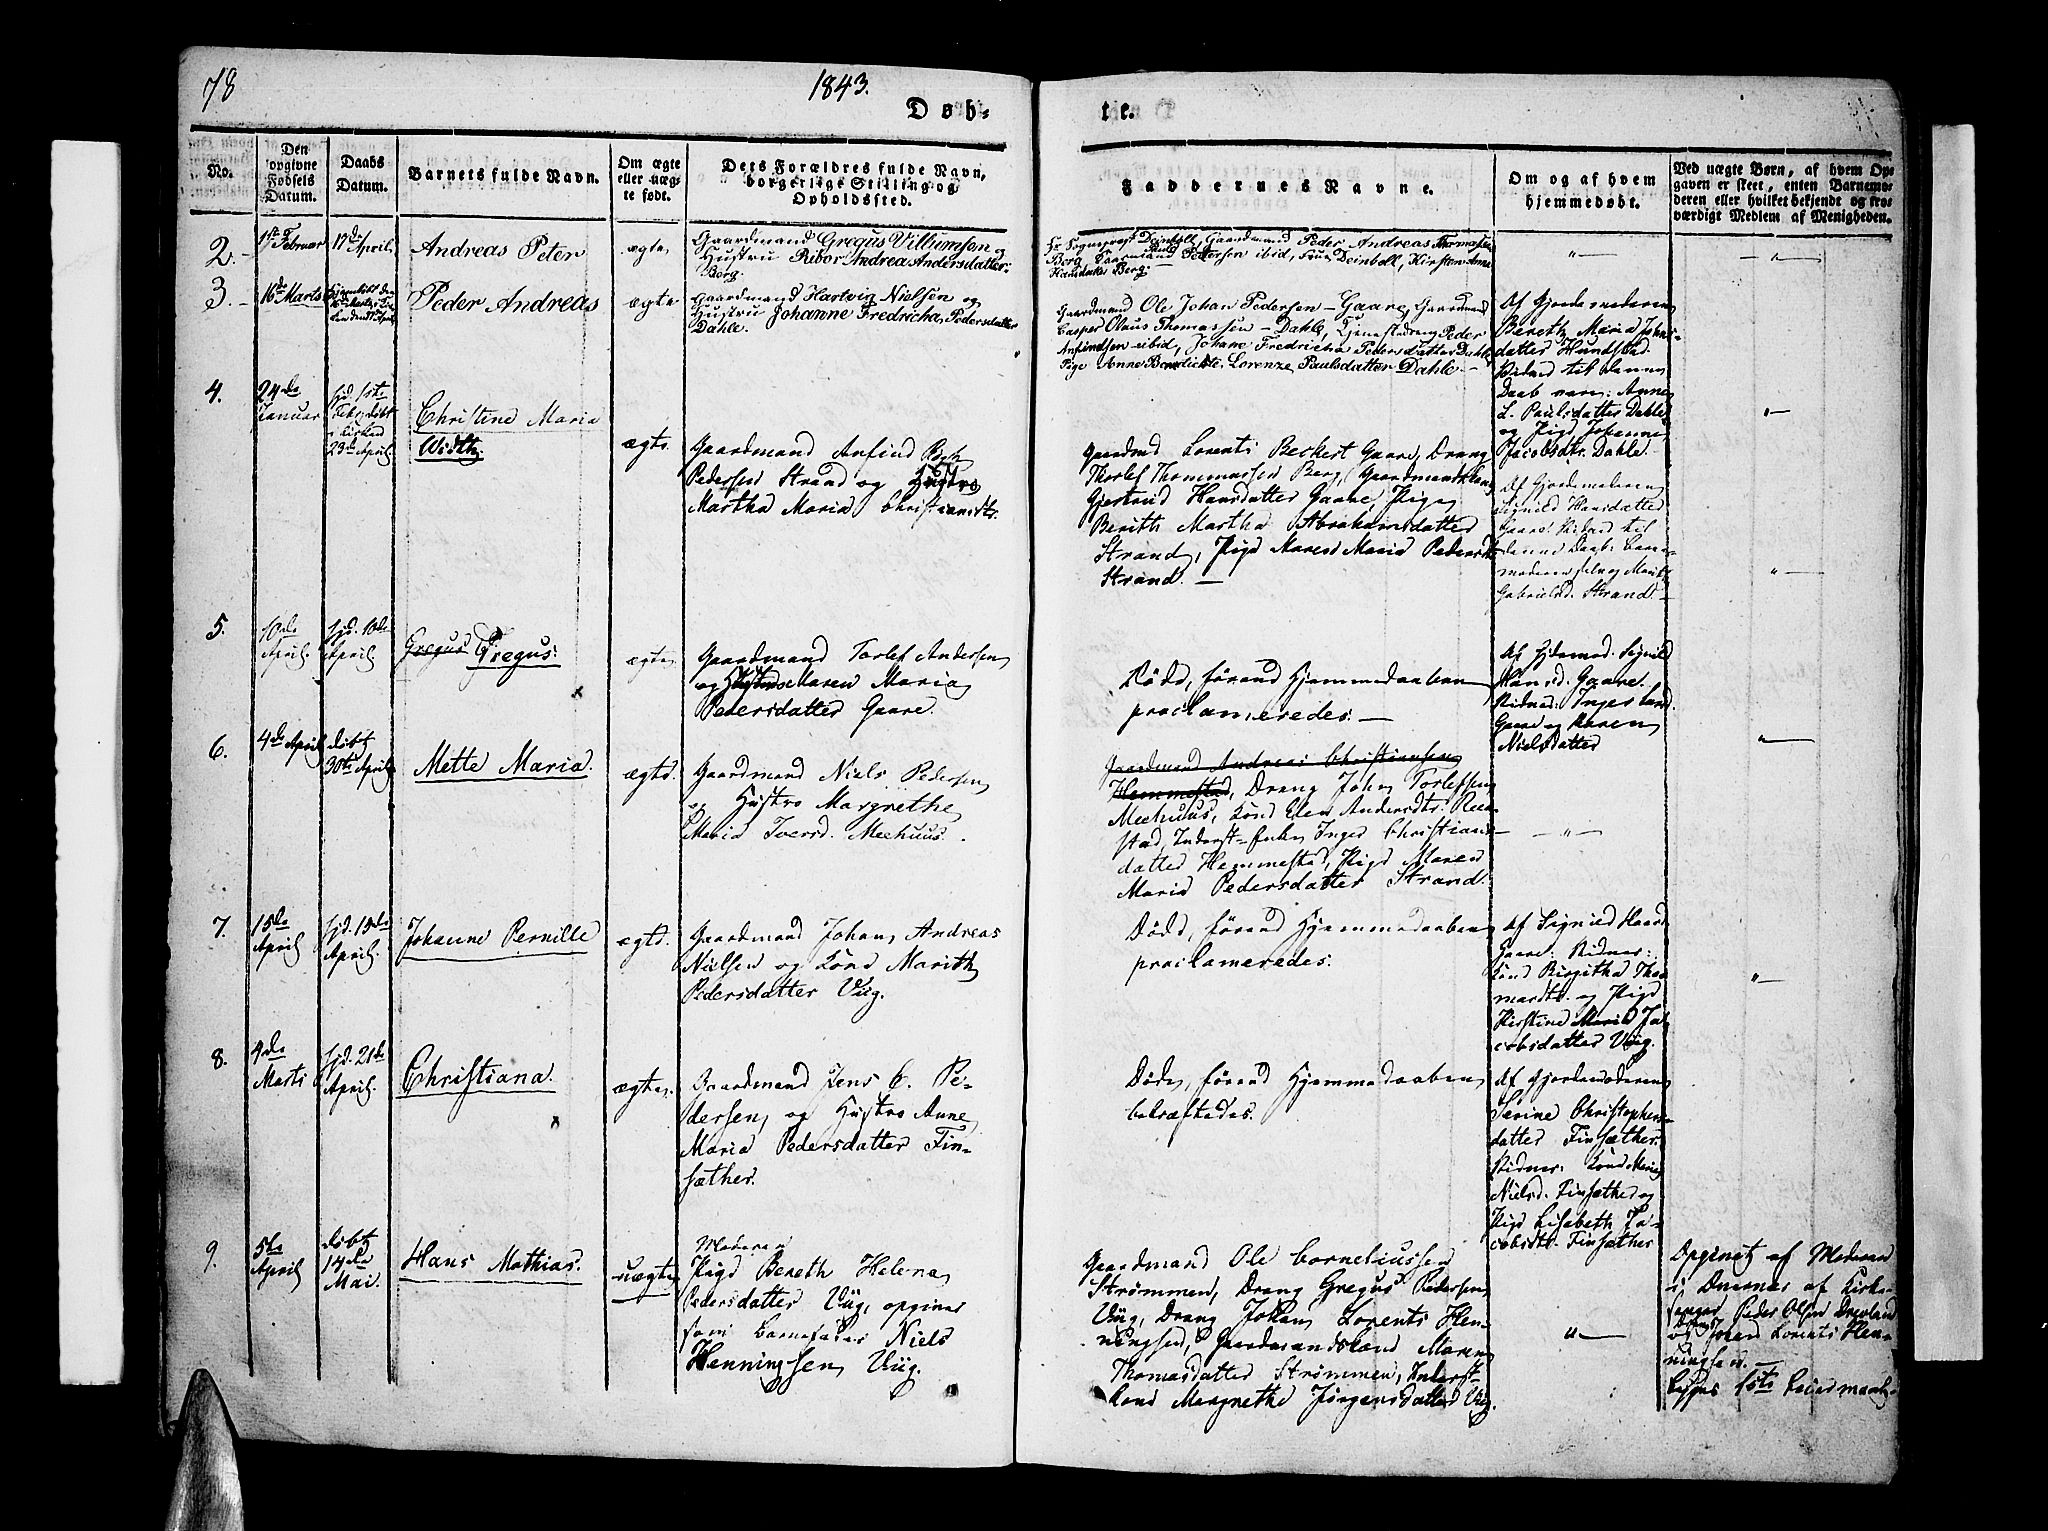 78
1843.
Døb-
te.
No.
Den
opgivne
Fødsels
Datum.
Daabs
Datum.
Barnets fulde Navn.
Om ægte
eller uæg-
te født.
Dets Forældres fulde Navn,
borgerlige Stilling og
Opholdssted.
Faddernes Navne.
Om og af hvem
hjemmedøbt.
Ved uægte Børn, af hvem Op-
gaven er skeet, enten Barnemo-
deren eller hvilket bekjendt og tro-
værdigt Medlem af Menigheden.
2.
1ste Februar
17de April
Andreas Peter
ægte
Gaardmand Gregus Villumsen og
Hustru Ribor Andrea Andersdatter
Borg.
Hr. Sogneprest Deinboll, Gaardmand Peder Andreas Thomassen
Borg, Pedersen ibid, Frue Deinboll, Kirsten Anne
Hansdatter Berg
3.
16de Marts
Peder Andreas
ægte
Gaardmand Hartvig Nielsen og
Hustru Johanne Fredricha Pedersdatter
Dahle.
Gaardmand Ole Johan Pedersen - Gaare, Gaardmand
Casper Olaus Thomassen - Dahle, Tjenestedreng Peder
Anfindsen ibid, Johane Fredricha Pedersdatter Dahle
Pige Anne Benedicte Lorenze Paulsdatter Dahle -
Af Gjordemoderen
Bereth Maria Johns-
datter Hundstad.
Vidner til denne
Daab vare: Anne
L. Paulsdatter Dahle
og Pige Johanne
Jacobsdtr. Dahle.
4.
24de
Januar
hjd. 1ste
Febr. døbt
i Kirken
23de April
Christine Maria
Width.
ægte
Gaardmand Anfind Røgh
Pedersen Strand og Hustro
Martha Maria Christiansdtr.
Gaardmd Lorents Beckert Gaare, Dreng
Thorlef Thommassen Berg, Gaardmandskone
Gjertrud Hansdatter Gaare, Pige
Berith Martha Abrahamsdatter
Strand, Pige Maren Maria Pedersdtr
Strand. -
Af Gjordemoderen
Signild Hansdatter
Gaare. Vidner til
denne Daab: Barne-
moderen selv og Marith
Gabrielsd. Strand -
5.
10de
April
hjd. 10de
April
Gregus Gregus.
ægte
Gaardmand Torlef Andersen
og Hustro Maren Maria
Pedersdatter Gaare.
Død, førend Hjemmedaaben
proclameredes. -
Af Gjdemod. Signild
Hansd. Gaare.
Vidner: Inger
Gaare og Maren
Nielsdatter
6.
4de April
døbt
30te April
Mette Maria.
ægte
Gaardmand Niels Pedersen
og Hustro Margrethe
Maria Iversd. Meehuus.
Gaardmand Andreas Christiansen
Hemmestad, Dreng John Torlefsen
Meehuus, Kone Elen Andersdtr. Ree-
stad, Inderst-Enke Inger Christians-
datter Hemmestad, Pige Maren
Maria Pedersdatter Strand.
7.
15de
April
hjd. 15de
April.
Johanne Pernille
ægte
Gaardmand Johan Andreas
Nielsen og Kone Marith
Pedersdatter Viig.
Død, førend Hjemmedaaben
proclameredes.
Af Signild Hansd.
Gaare. Vidner:
Kone Birgitha Tho-
masdtr. og Pige
Kirstine Maria Ja-
cobsdatter Viig.
8.
4de
Marts
hjd. 21de
April.
Christiana.
ægte
Gaardmand Jens C. Pe-
dersen og Hustro Anne
Maria Pedersdatter Fin-
sæther.
Døde, førend Hjemmedaaben
bekræftedes.
Af Gjordemoderen
Serine Christophers-
datter Finsæther.
Vidner: Kone Maria
Nielsd. Finsæther og
Pige Lisabeth Ja-
cobsdtr. Finsæther
9.
5te
April
døbt
14de
Mai.
Hans Mathias.
uægte
Moderen
Pige Bereth Helena
Pedersdatter Viig, opgiver
som Barnefader Niels
Henningsen Viig.
Gaardmand Ole Corneliussen
Strømmen, Dreng Gregus Pedersen
Viig, Dreng Johan Lorents Hen-
ningsen, Gaardmandskone Maren
Thomasdatter Strømmen, Inderst-
kone Margrethe Jørgensdatter Viig.
Opgivet af Moderen
i Overvær af Kirke-
sanger Peder Olsen Drevland
og Dreng Johan Lorents Hen-
ningsen. -
Begges 1ste Leiermaal.